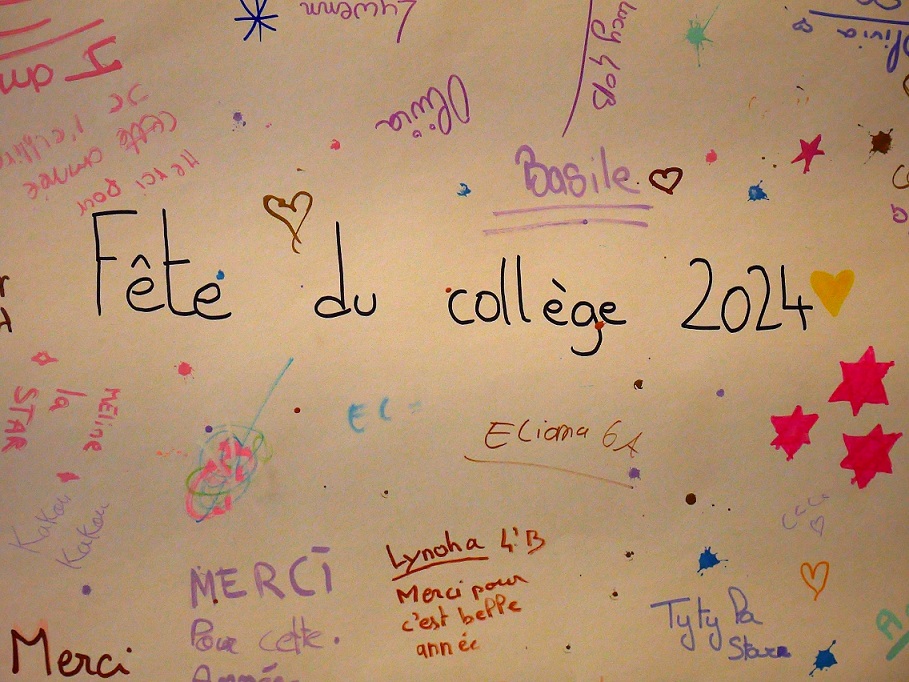 Lywenn
Lucy 4°B
Olivia
I am
Olivia
Merci pour
cette année
Je
Basile
Fête du collège 2024
Méline
la
STAR
EC
Eliona 6A
Kakou
Kakou
Coco
MERCI
Pour cette.
Année.
Lynoha 4'B
Merci pour
c'est beppe
année
Tyty Pa
Starr
Merci